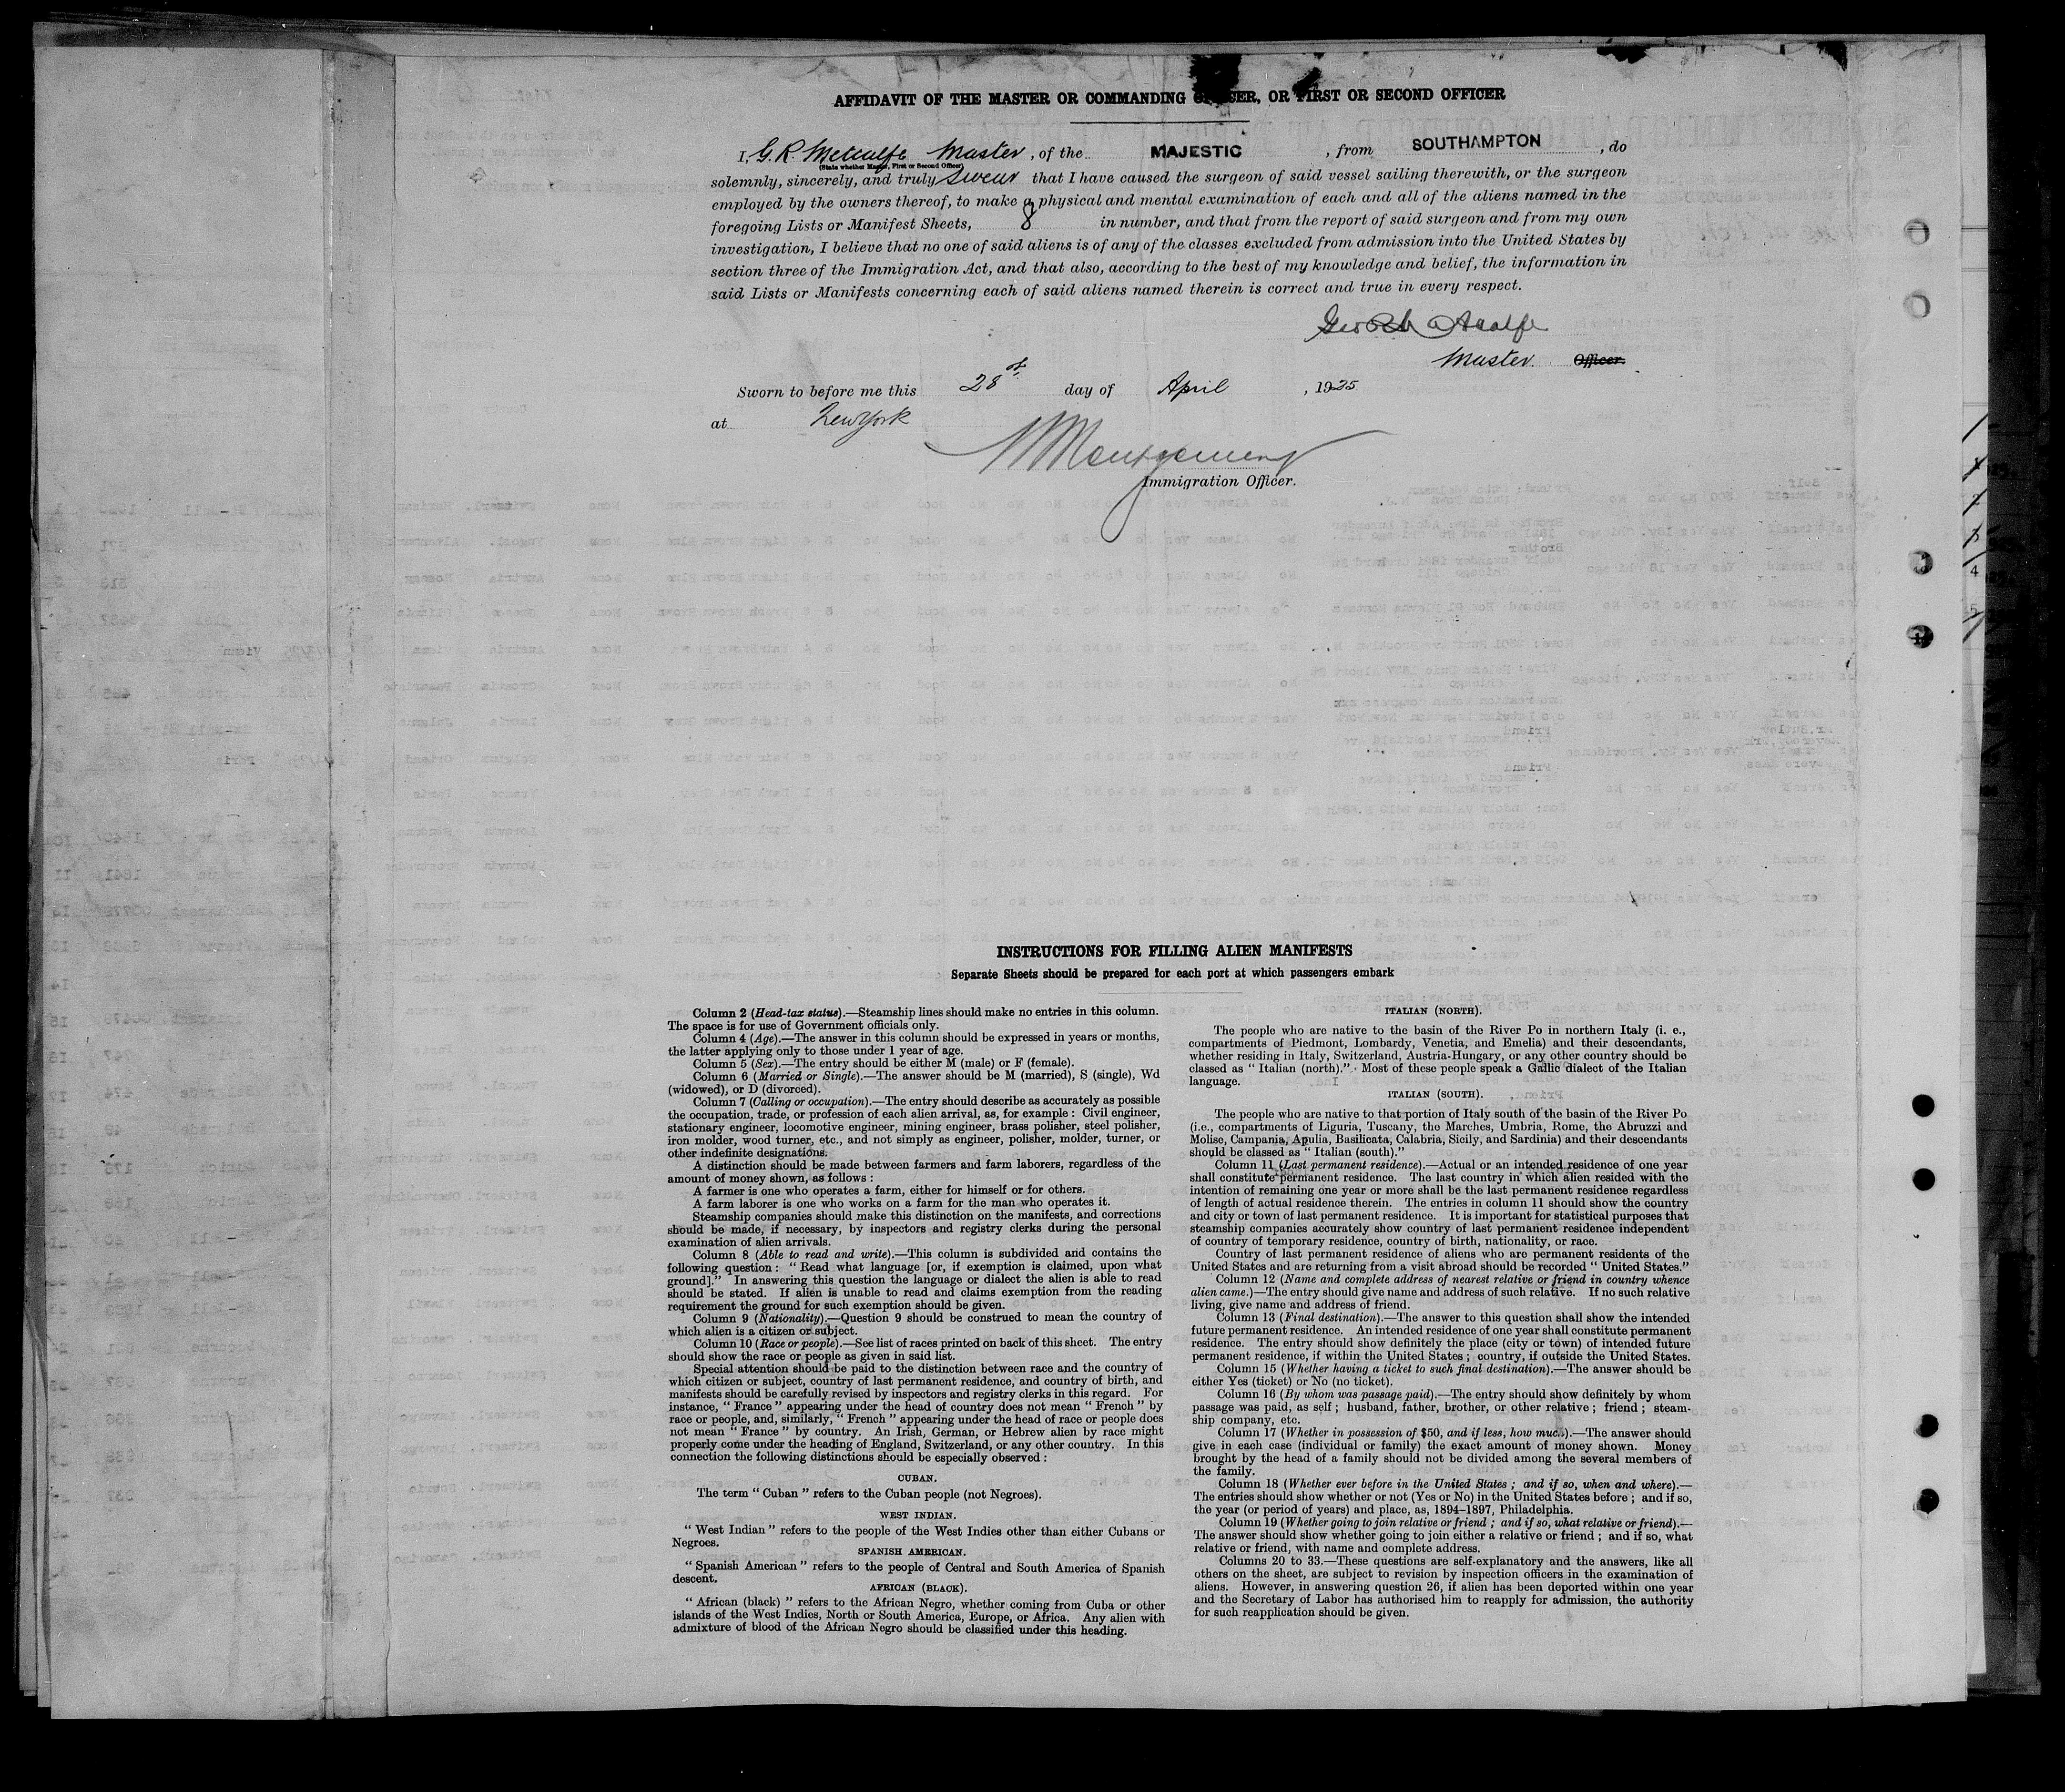 AFFIDAVIT OF THE MASTER OR COMMANDING OFFICER, OR FIRST OR SECOND OFFICER
I, G. R. Metcalfe Master, of the MAJESTIC, from SOUTHAMPTON, do
(State whether Master, First or Second Officer)
solemnly, sincerely, and truly swear that I have caused the surgeon of said vessel sailing therewith, or the surgeon
employed by the owners thereof, to make a physical and mental examination of each and all of the aliens named in the
foregoing Lists or Manifest Sheets, 8 in number, and that from the report of said surgeon and from my own
investigation, I believe that no one of said aliens is of any of the classes excluded from admission into the United States by
section three of the Immigration Act, and that also, according to the best of my knowledge and belief, the information in
said Lists or Manifests concerning each of said aliens named therein is correct and true in every respect.
Master. Officer.
Sworn to before me this 28th day of April, 1925
at New York
Montgomery
Immigration Officer.
INSTRUCTIONS FOR FILLING ALIEN MANIFESTS
Separate Sheets should be prepared for each port at which passengers embark
Column 2 (Head-tax status).—Steamship lines should make no entries in this column.
The space is for use of Government officials only.
Column 4 (Age).—The answer in this column should be expressed in years or months,
the latter applying only to those under 1 year of age.
Column 5 (Sex).—The entry should be either M (male) or F (female).
Column 6 (Married or Single).—The answer should be M (married), S (single), Wd
(widowed), or D (divorced).
Column 7 (Calling or occupation).—The entry should describe as accurately as possible
the occupation, trade, or profession of each alien arrival, as, for example : Civil engineer,
stationary engineer, locomotive engineer, mining engineer, brass polisher, steel polisher,
iron molder, wood turner, etc., and not simply as engineer, polisher, molder, turner, or
other indefinite designations.
A distinction should be made between farmers and farm laborers, regardless of the
amount of money shown, as follows :
A farmer is one who operates a farm, either for himself or for others.
A farm laborer is one who works on a farm for the man who operates it.
Steamship companies should make this distinction on the manifests, and corrections
should be made, if necessary, by inspectors and registry clerks during the personal
examination of alien arrivals.
Column 8 (Able to read and write).—This column is subdivided and contains the
following question : “ Read what language [or, if exemption is claimed, upon what
ground].” In answering this question the language or dialect the alien is able to read
should be stated. If alien is unable to read and claims exemption from the reading
requirement the ground for such exemption should be given.
Column 9 (Nationality).—Question 9 should be construed to mean the country of
which alien is a citizen or subject.
Column 10 (Race or people).—See list of races printed on back of this sheet. The entry
should show the race or people as given in said list.
Special attention should be paid to the distinction between race and the country of
which citizen or subject, country of last permanent residence, and country of birth, and
manifests should be carefully revised by inspectors and registry clerks in this regard. For
instance, “ France ” appearing under the head of country does not mean “ French ” by
race or people, and, similarly, “ French ” appearing under the head of race or people does
not mean “ France ” by country. An Irish, German, or Hebrew alien by race might
properly come under the heading of England, Switzerland, or any other country. In this
connection the following distinctions should be especially observed :
CUBAN.
The term “ Cuban ” refers to the Cuban people (not Negroes).
WEST INDIAN.
“ West Indian ” refers to the people of the West Indies other than either Cubans or
Negroes.
SPANISH AMERICAN.
“ Spanish American ” refers to the people of Central and South America of Spanish
descent.
AFRICAN (BLACK).
“ African (black) ” refers to the African Negro, whether coming from Cuba or other
islands of the West Indies, North or South America, Europe, or Africa. Any alien with
admixture of blood of the African Negro should be classified under this heading.
ITALIAN (NORTH).
The people who are native to the basin of the River Po in northern Italy (i. e.,
compartments of Piedmont, Lombardy, Venetia, and Emelia) and their descendants,
whether residing in Italy, Switzerland, Austria-Hungary, or any other country should be
classed as “ Italian (north).” Most of these people speak a Gallic dialect of the Italian
language.
ITALIAN (SOUTH).
The people who are native to that portion of Italy south of the basin of the River Po
(i.e., compartments of Liguria, Tuscany, the Marches, Umbria, Rome, the Abruzzi and
Molise, Campania, Apulia, Basilicata, Calabria, Sicily, and Sardinia) and their descendants
should be classed as “ Italian (south).”
Column 11 (Last permanent residence).—Actual or an intended residence of one year
shall constitute permanent residence. The last country in which alien resided with the
intention of remaining one year or more shall be the last permanent residence regardless
of length of actual residence therein. The entries in column 11 should show the country
and city or town of last permanent residence. It is important for statistical purposes that
steamship companies accurately show country of last permanent residence independent
of country of temporary residence, country of birth, nationality, or race.
Country of last permanent residence of aliens who are permanent residents of the
United States and are returning from a visit abroad should be recorded “ United States.”
Column 12 (Name and complete address of nearest relative or friend in country whence
alien came.)—The entry should give name and address of such relative. If no such relative
living, give name and address of friend.
Column 13 (Final destination).—The answer to this question shall show the intended
future permanent residence. An intended residence of one year shall constitute permanent
residence. The entry should show definitely the place (city or town) of intended future
permanent residence, if within the United States ; country, if outside the United States.
Column 15 (Whether having a ticket to such final destination).—The answer should be
either Yes (ticket) or No (no ticket).
Column 16 (By whom was passage paid).—The entry should show definitely by whom
passage was paid, as self ; husband, father, brother, or other relative ; friend ; steam-
ship company, etc.
Column 17 (Whether in possession of $50, and if less, how much).—The answer should
give in each case (individual or family) the exact amount of money shown. Money
brought by the head of a family should not be divided among the several members of
the family.
Column 18 (Whether ever before in the United States ; and if so, when and where).—
The entries should show whether or not (Yes or No) in the United States before ; and if so,
the year (or period of years) and place, as, 1894–1897, Philadelphia.
Column 19 (Whether going to join relative or friend ; and if so, what relative or friend).—
The answer should show whether going to join either a relative or friend ; and if so, what
relative or friend, with name and complete address.
Columns 20 to 33.—These questions are self-explanatory and the answers, like all
others on the sheet, are subject to revision by inspection officers in the examination of
aliens. However, in answering question 26, if alien has been deported within one year
and the Secretary of Labor has authorised him to reapply for admission, the authority
for such reapplication should be given.